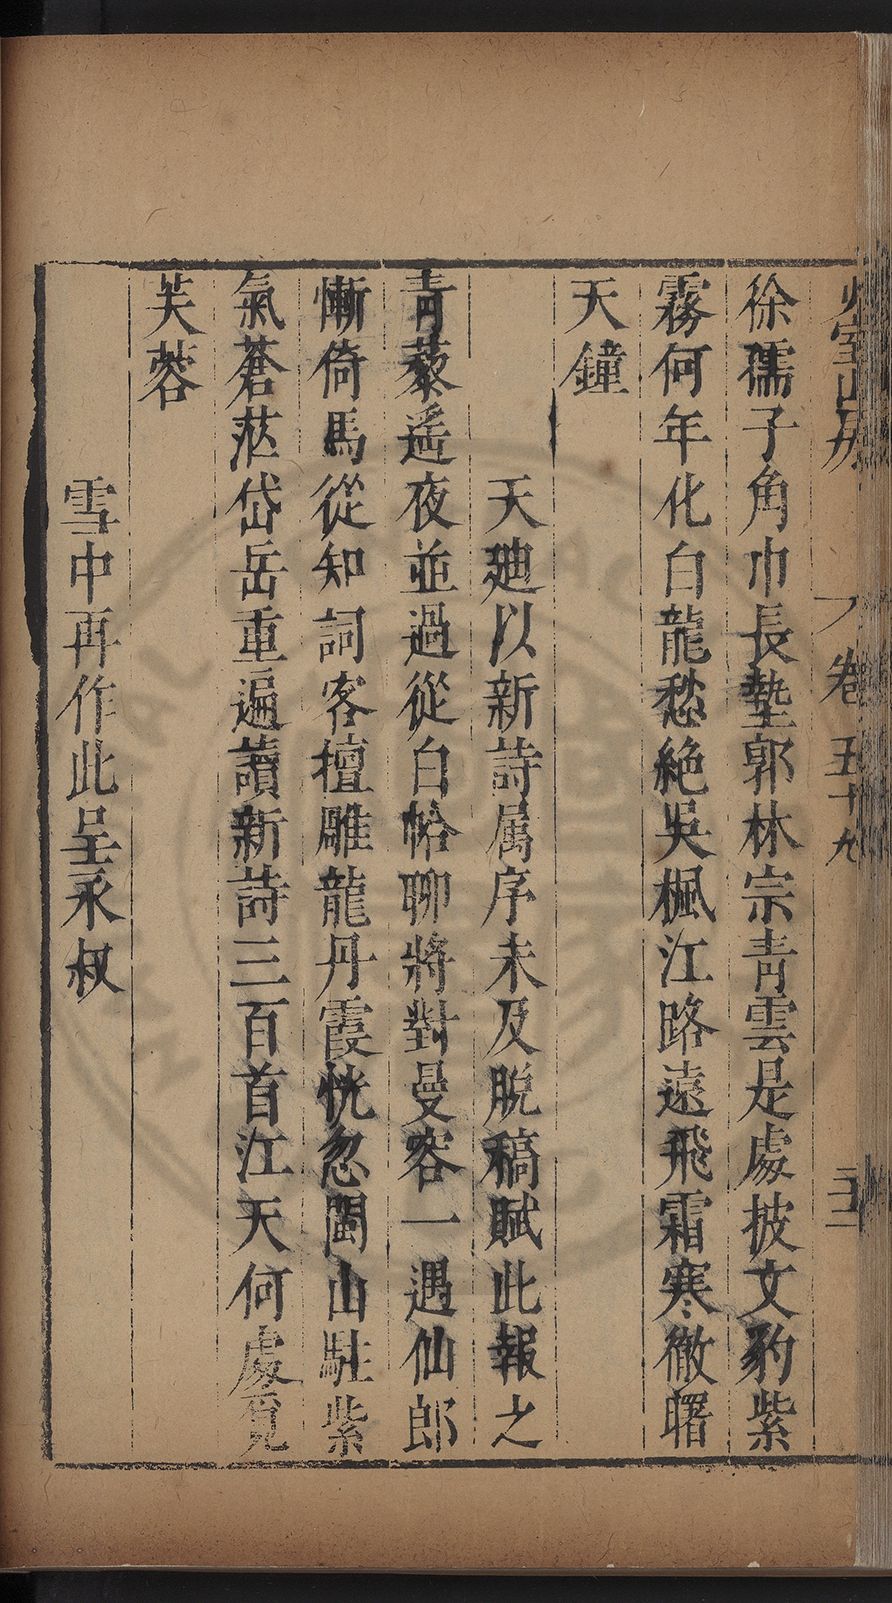 少室山房 卷五十九 三十一
徐孺子角巾長墊郭林宗青雲是處披文豹紫
霧何年化白龍愁絶吳楓江路遠飛霜寒徹曙
天鐘
天廸以新詩属序未及脫稿賦此報之
青藜遥夜並過從白帢聊將對曼容一遇仙郎
慚倚馬從知詞客擅雕龍丹霞恍忽閩山駐紫
氣蒼茫岱岳重遍讀新詩三百首江天何處覓
芙蓉
雪中再作此呈永叔